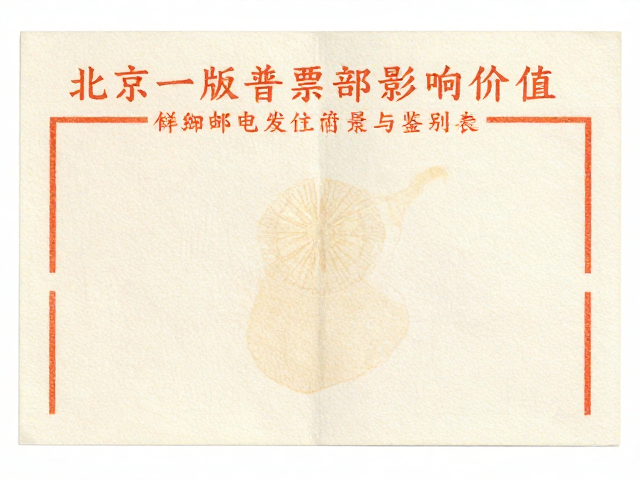 北京一版普票部影响价值
邮电发住景与鉴别表